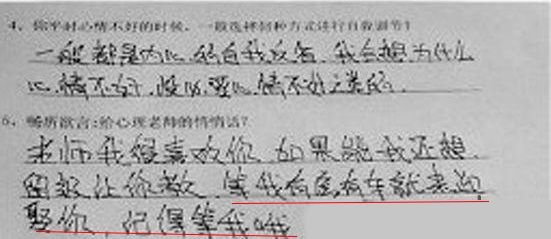 4、你平时心情不好的时候，一般选择何种方式进行自我调节？
一般都是内心的自我反省，我会想为什么
心情不好，
心情不好之类的.
5、畅所欲言:给心理老师的悄悄话?
老师我很喜欢你 如果能 我还想
让你教，等我有房有车就来迎
娶你，记得等我哦